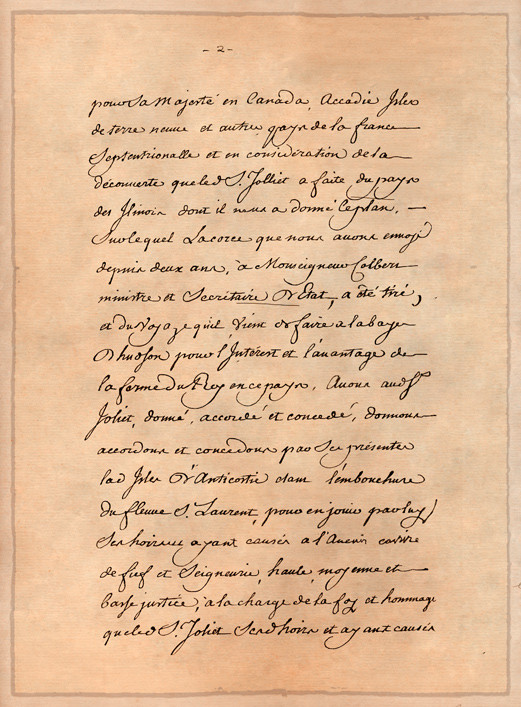 - 2 -
pour Sa Majesté en Canada, Accadie Isles
de terre neuve et autres pays de la france
Septentrionalle et en considération de la
découverte que led S. Jolliet a faite du pays
des Ilinois dont il nous a donné le plan,
Sur lequel La corce que nous avons envoyé
depuis deux ans, à Monseigneur Colbert
ministre et Secrétaire D'Etat, a été tiré,
et du voyage qu'il vient de faire a la baye
D'hudson pour l'Intérest et l'avantage de
la ferme du Roy en ce pays, Avons aud S.
Joliet, donné, accordé et concédé, donnons
accordons et concedons par Ses présentes
lad Isles D'Anticostie dans l'embouchure
du fleuve S. Laurent, pour en jouir par luy
Ses hoirs ayant causes a l'Avenir comme
de fief et Seigneurie, haute, moyenne et
basse justice, a la charge de la foy et hommage
que led S. Joliet Sesd hoirs et ayant causes